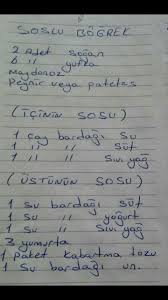 SOSLU BÖĞREK
2 Adet Soğan
6 " yufka
Maydonoz
Peynir veya patates
(İÇİNİN SOSU)
1 Çay bardağı Su
1 " " Süt
1 " " Sıvı yağ
(ÜSTÜNÜN SOSU)
1 Su bardağı süt
1 Su " yoğurt
1 Su " Sıvı yağ
3 yumurta
1 Paket Kabartma tozu
1 Su bardağı un.